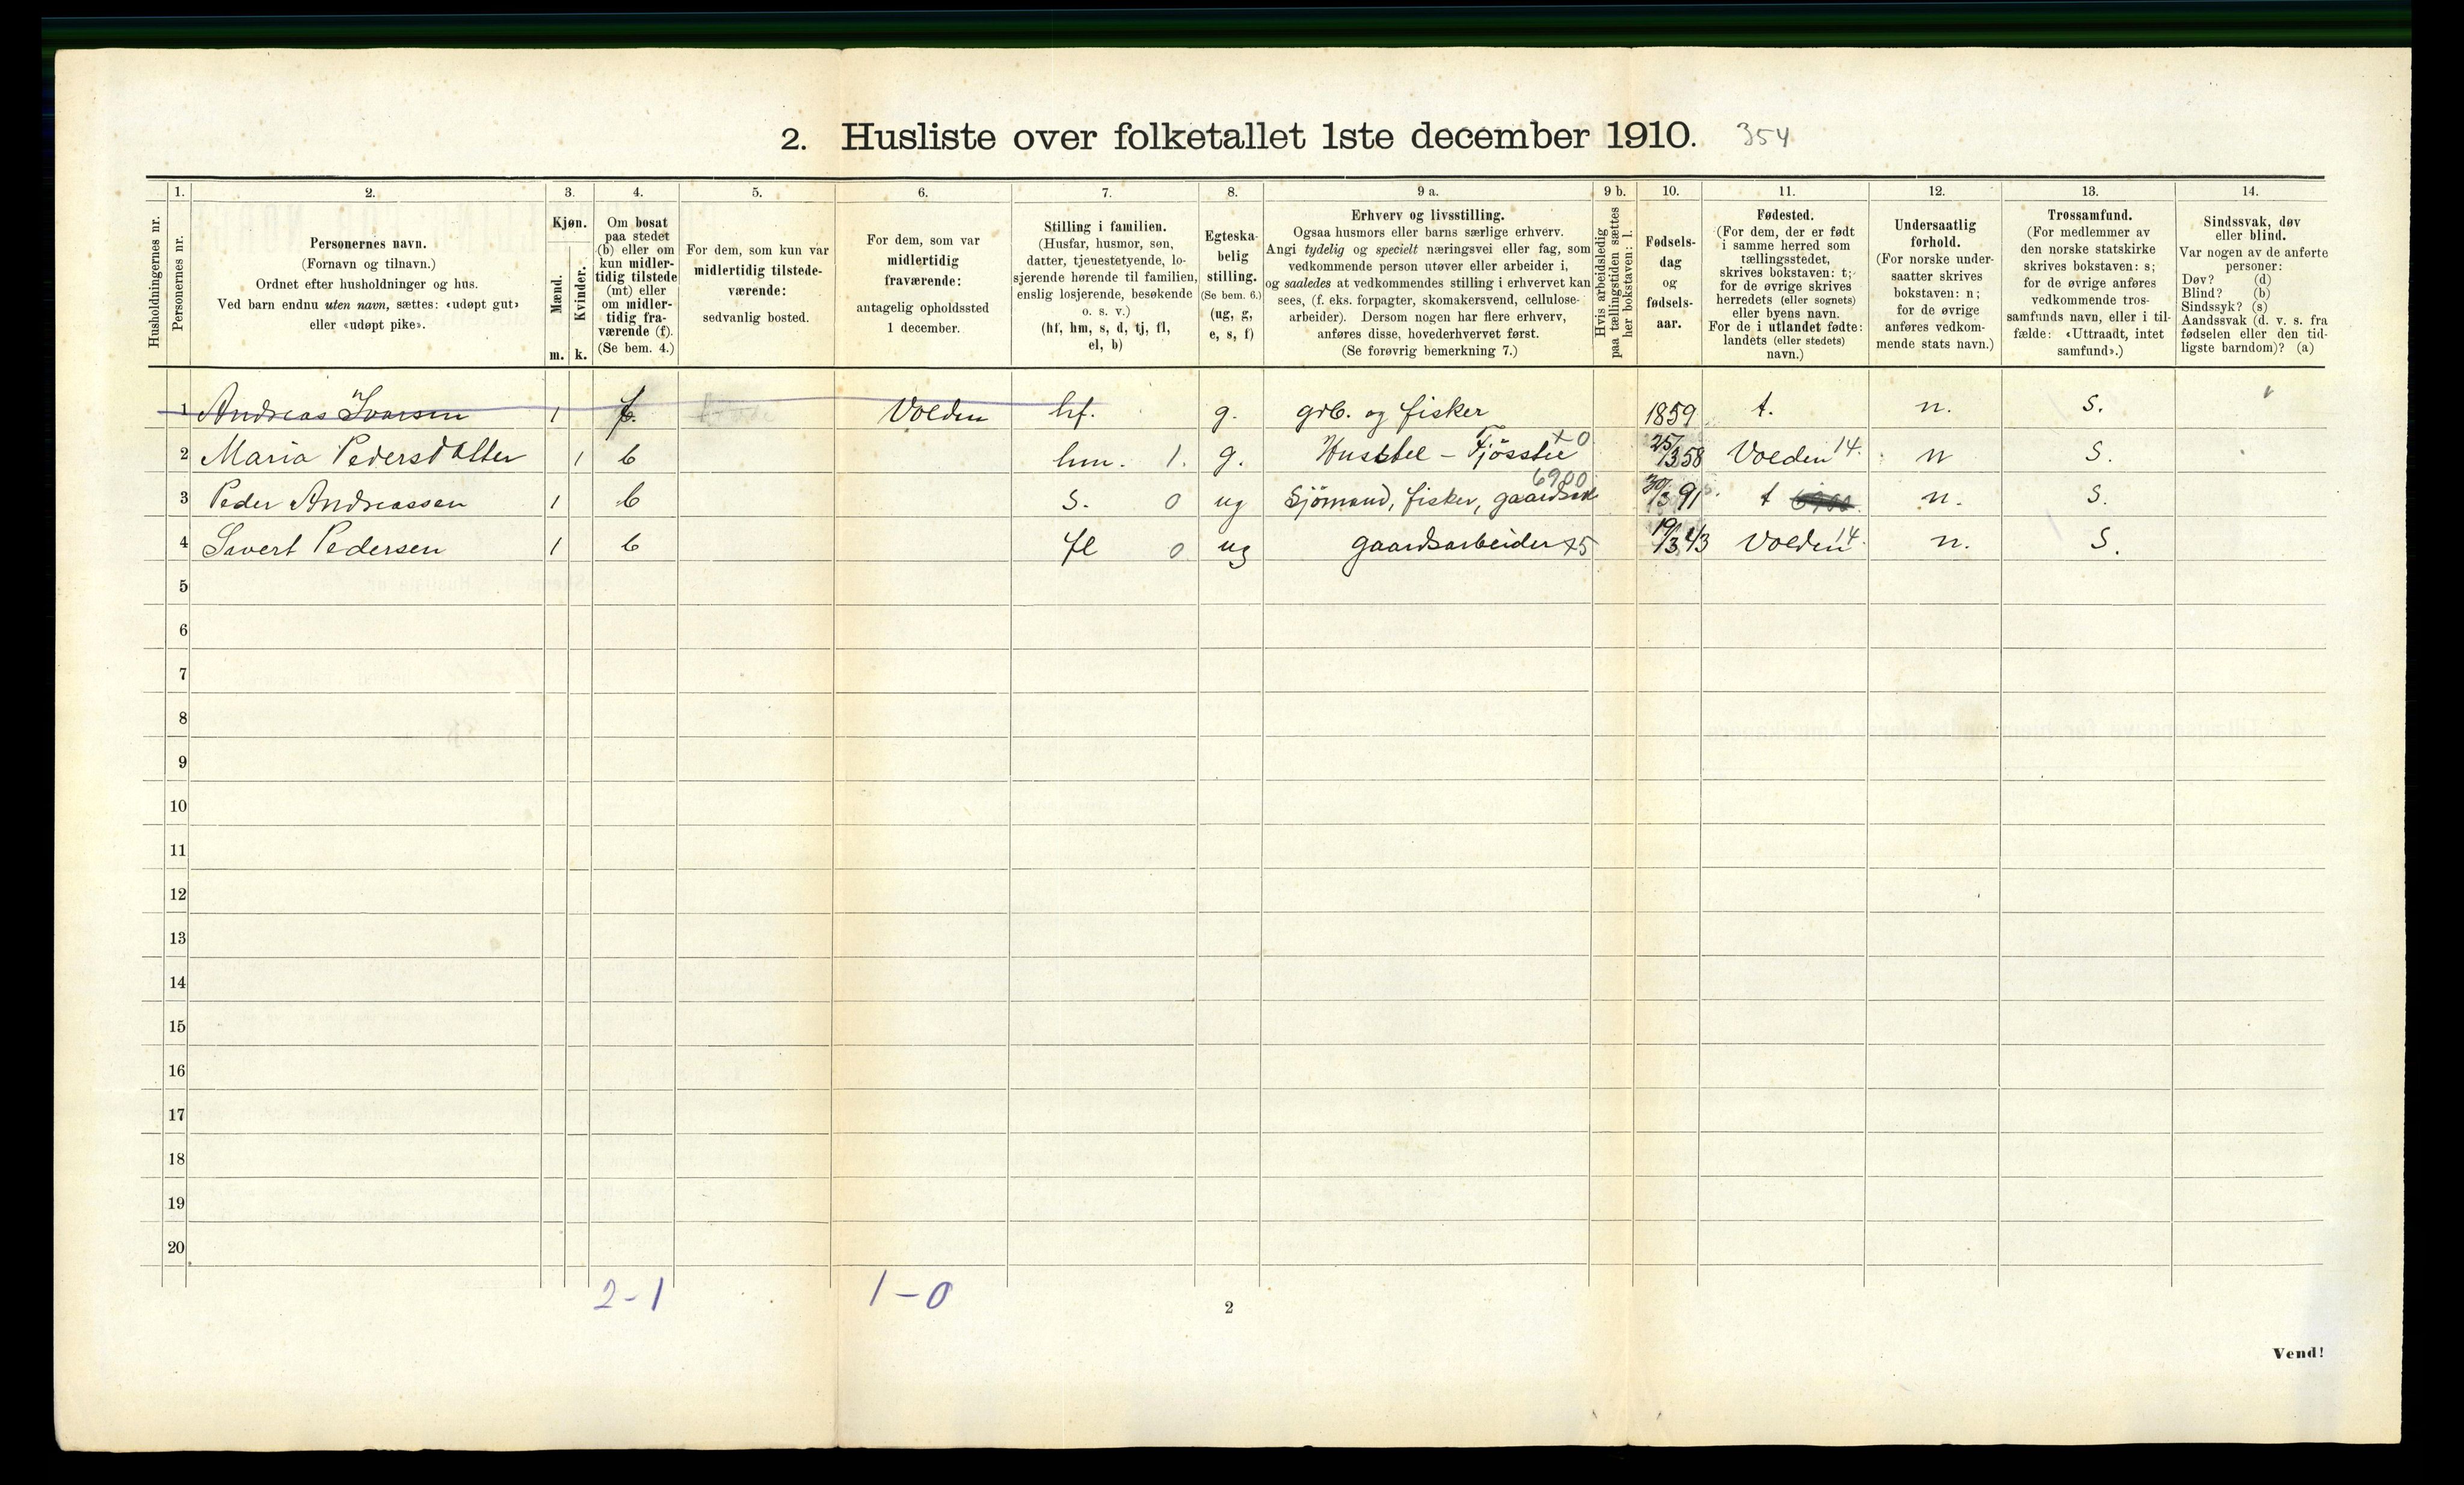 2. Husliste over folketallet 1ste december 1910. 354
Husholdningernes nr.
1.
Personernes nr.
2.
Personernes navn.
(Fornavn og tilnavn.)
Ordnet efter husholdninger og hus.
Ved barn endnu uten navn, sættes: «udøpt gut»
eller «udøpt pike».
3.
Kjøn.
Mænd.
Kvinder.
m. k.
4.
Om bosat
paa stedet
(b) eller om
kun midler-
tidig tilstede
(mt) eller
om midler-
tidig fra-
værende (f).
(Se bem. 4.)
5.
For dem, som kun var
midlertidig tilstede-
værende:
sedvanlig bosted.
6.
For dem, som var
midlertidig
fraværende:
antagelig opholdssted
1 december.
7.
Stilling i familien.
(Husfar, husmor, søn,
datter, tjenestetyende, lo-
sjerende hørende til familien,
enslig losjerende, besøkende
o. s. v.)
(hf, hm, s, d, tj, fl,
el, b)
8.
Egteska-
belig
stilling.
(Se bem. 6.)
(ug, g,
e, s, f)
9 a.
Erhverv og livsstilling.
Ogsaa husmors eller barns særlige erhverv.
Angi tydelig og specielt næringsvei eller fag, som
vedkommende person utøver eller arbeider i,
og saaledes at vedkommendes stilling i erhvervet kan
sees, (f. eks. forpagter, skomakersvend, cellulose-
arbeider). Dersom nogen har flere erhverv,
anføres disse, hovederhvervet først.
(Se forøvrig bemerkning 7.)
9 b.
Hvis arbeidsledig
paa tællingstiden sættes
her bokstaven: l.
10.
Fødsels-
dag
og
fødsels-
aar.
11.
Fødested.
(For dem, der er født
i samme herred som
tællingsstedet,
skrives bokstaven: t;
for de øvrige skrives
herredets (eller sognets)
eller byens navn.
For de i utlandet fødte:
landets (eller stedets)
navn.)
12.
Undersaatlig
forhold.
(For norske under-
saatter skrives
bokstaven: n;
for de øvrige
anføres vedkom-
mende stats navn.)
13.
Trossamfund.
(For medlemmer av
den norske statskirke
skrives bokstaven: s;
for de øvrige anføres
vedkommende tros-
samfunds navn, eller i til-
fælde: «Uttraadt, intet
samfund».)
14.
Sindssvak, døv
eller blind.
Var nogen av de anførte
personer:
Døv? (d)
Blind? (b)
Sindssyk? (s)
Aandssvak (d. v. s. fra
fødselen eller den tid-
ligste barndom)? (a)
1 Andreas Ivarsen 1 f. Volden hf. g. grb. og fisker 1859 t. n. s.
2 Maria Pedersdatter 1 b hm. 1. g. Husstel - Fjösstel +0 25/3 58 Volden 14. n s.
3 Peder Andreassen 1 b s. 0 ug Sjömand, fisker, 6900 30/3 91 t n. s.
4 Sivert Pedersen 1 b fl 0 ug gaardsarbeider +5 19/3 43 Volden 14. n. s.
5
6
7
8
9
10
11
12
13
14
15
16
17
18
19
20
2-1 1-0
2
Vend!